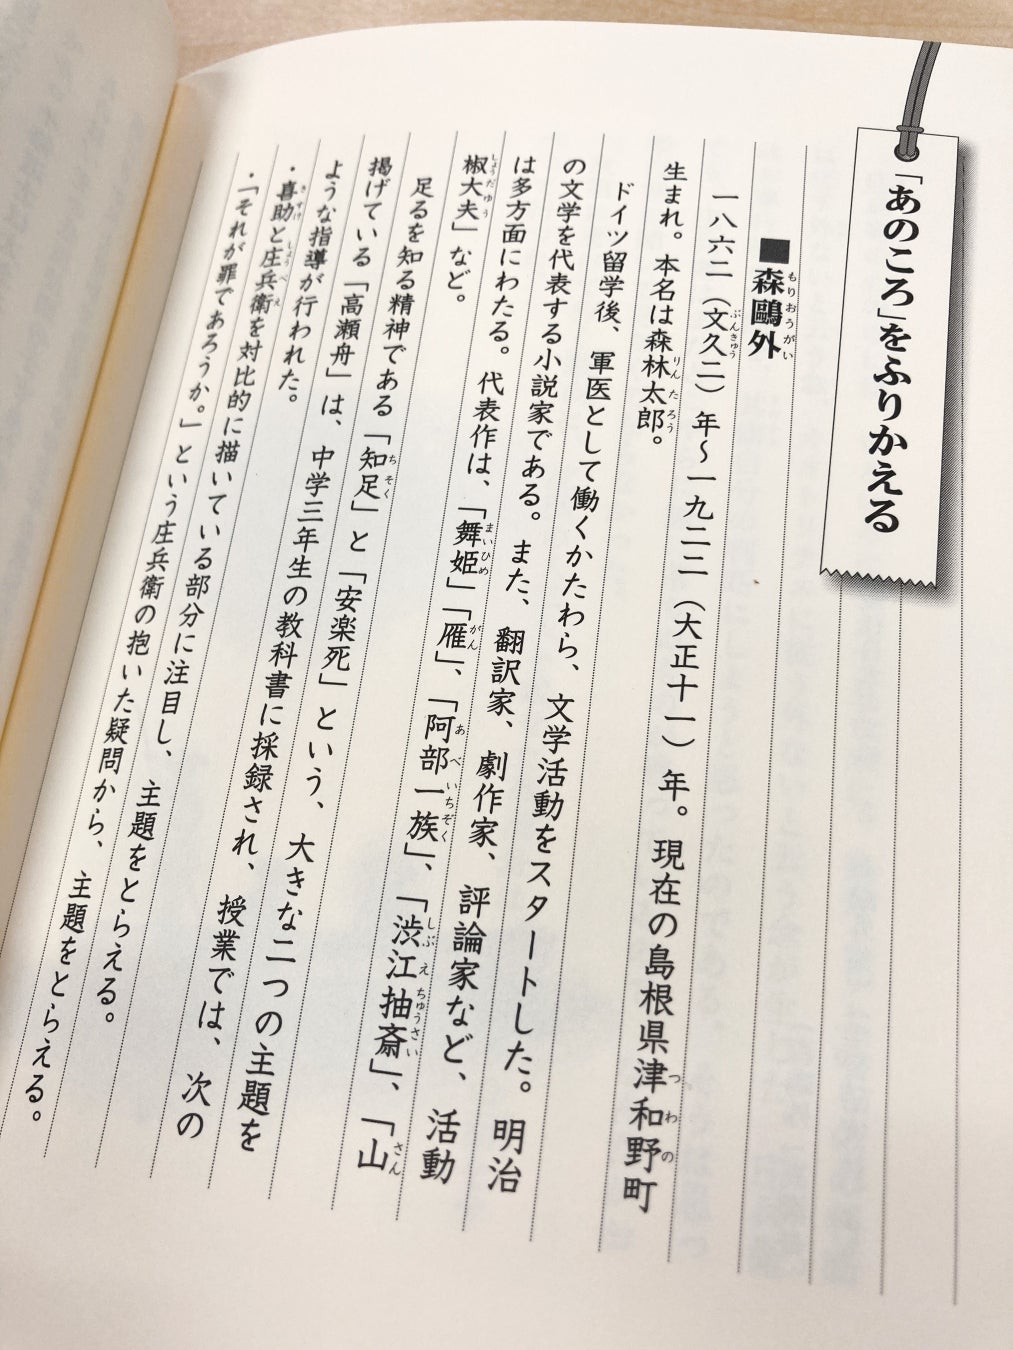 「あのころ」をふりかえる
■森鷗外
一八六二（文久二）年〜一九二二（大正十一）年。現在の島根県津和野町
生まれ。本名は森林太郎。
ドイツ留学後、軍医として働くかたわら、文学活動をスタートした。明治
の文学を代表する小説家である。また、翻訳家、劇作家、評論家など、活動
は多方面にわたる。代表作は、「舞姫」「雁」、「阿部一族」、「渋江抽斎」、「山
椒大夫」など。
足るを知る精神である「知足」と「安楽死」という、大きな二つの主題を
掲げている「高瀬舟」は、中学三年生の教科書に採録され、授業では、次の
ような指導が行われた。
・喜助と庄兵衛を対比的に描いている部分に注目し、主題をとらえる。
・「それが罪であろうか。」という庄兵衛の抱いた疑問から、主題をとらえる。